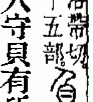 帶切
十五部
負
人守貝有